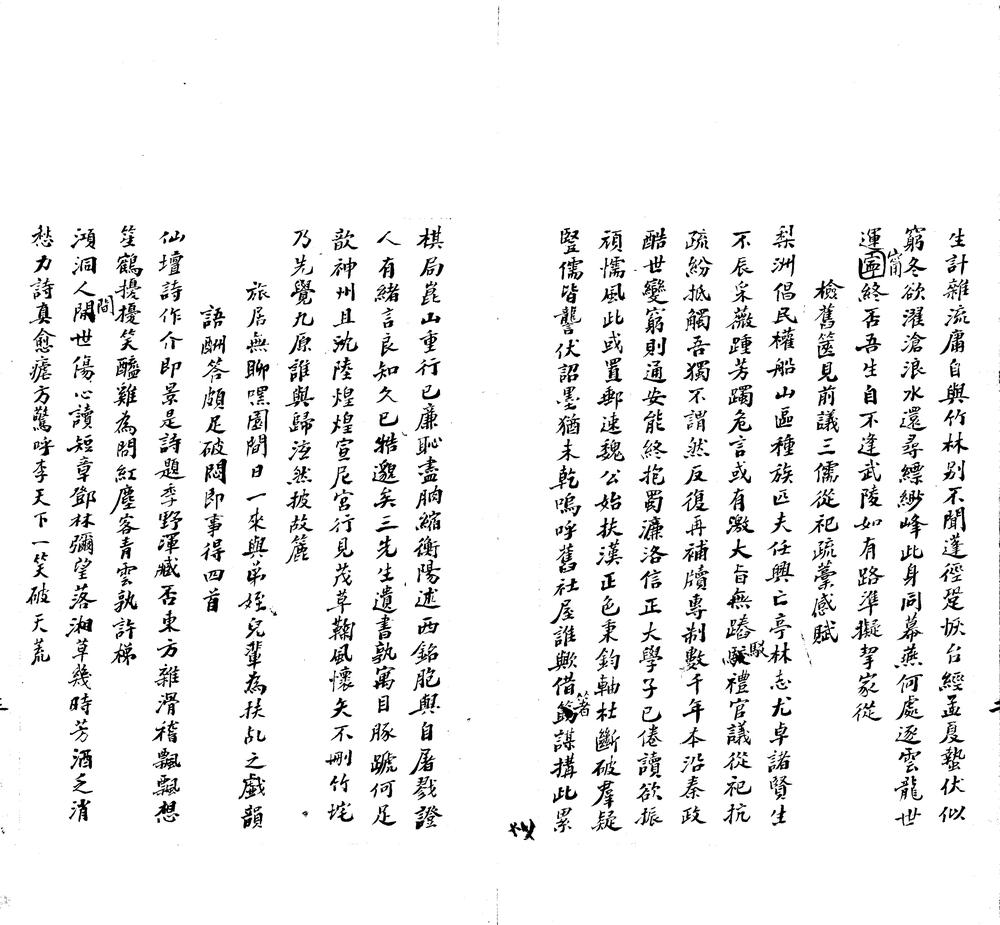 生計雜流庸自與竹林别不聞蓬徑跫恢台經孟夏蟄伏似
窮冬欲濯滄浪水還尋縹緲峰此身同幕燕何處逐雲龍世
運終否吾生自不逢武陵如有路準擬挈家從
檢舊篋見前議三儒從祀疏藳感賦
梨洲倡民權船山區種族匹夫任興亡亭林志尤卓諸賢生
不辰采薇踵芳躅危言或有激大旨無踳駁禮官議從祀抗
疏紛抵觸吾獨不謂然反復再補牘專制數千年本沿秦政
酷世變窮則通安能終抱蜀濂洛信正大學子已倦讀欲振
頑懦風此或置郵速魏公始扶漢正色秉鈞軸杜斷破羣疑
豎儒皆讋伏詔墨猶未乾嗚呼舊社屋誰歟借箸謀搆此累
棋局崑山重行已廉恥盡朒縮衡陽述西銘胞與自屠戮證
人有緒言良知久已牿邈矣三先生遺書孰寓目豚蹏何足
歆神州且沈陸煌煌宣尼宮行見茂草鞠風懷矢不刪竹垞
乃先覺九原誰與歸泫然披故簏
旅居無聊嘿園間日一來與弟姪兒輩為扶乩之戲韻
語酬答頗足破悶即事得四首
仙壇詩作介即景是詩題季野渾臧否東方雜滑稽飄飄想
笙鶴擾擾笑醯雞為問紅塵客青雲孰許梯
澒洞人間世傷心讀短章鄧林彌望落湘草幾時芳酒乏消
愁力詩真愈瘧方驚呼李天下一笑破天荒